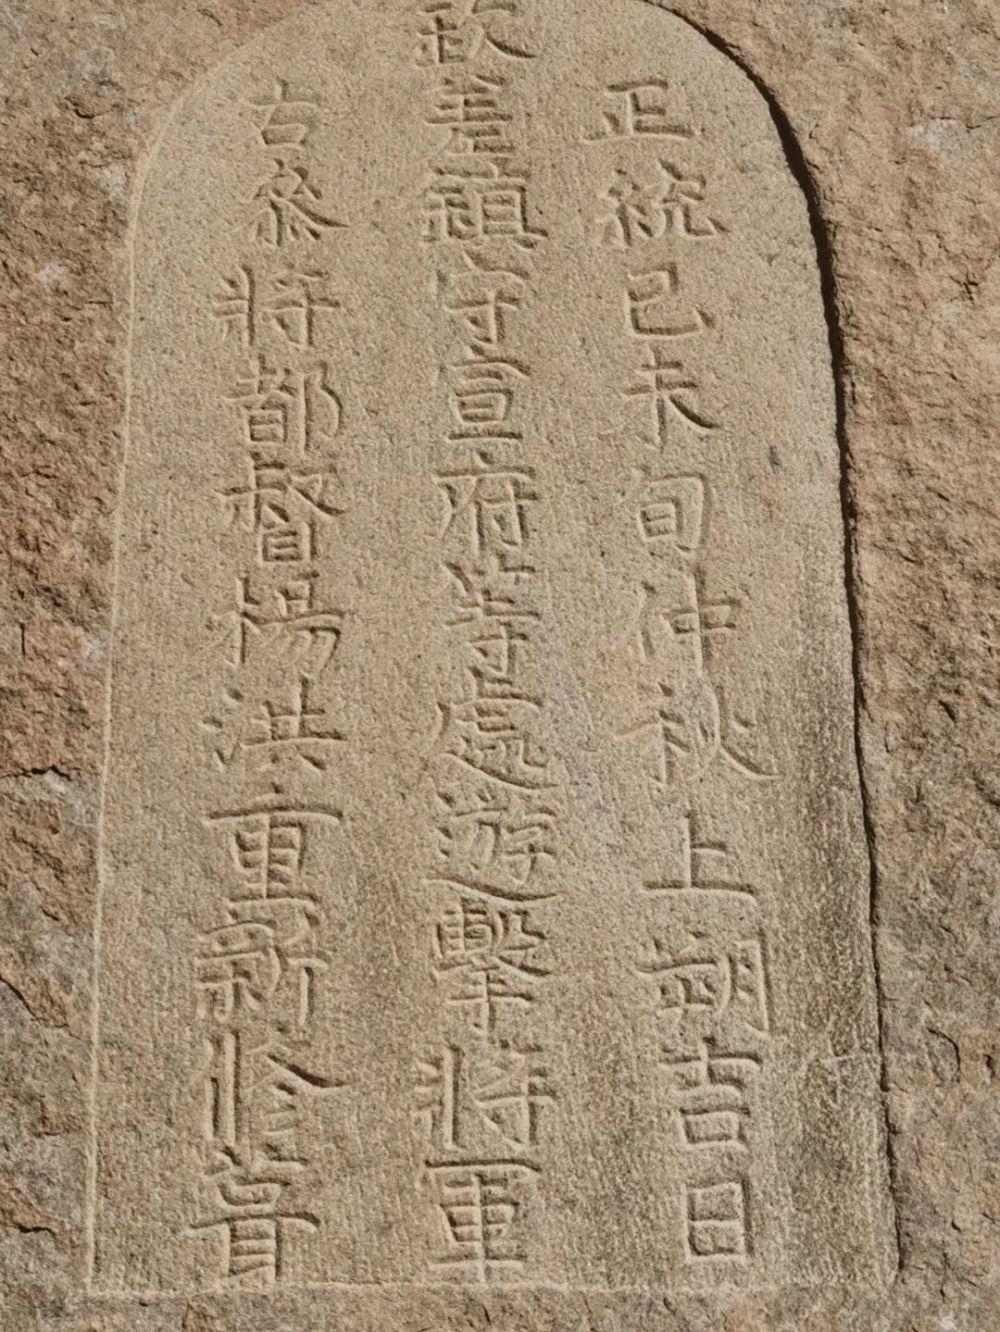 正統己未旬仲秋上朔吉日
欽差鎮守宣府等處遊擊將軍
右參將都督楊洪重新修